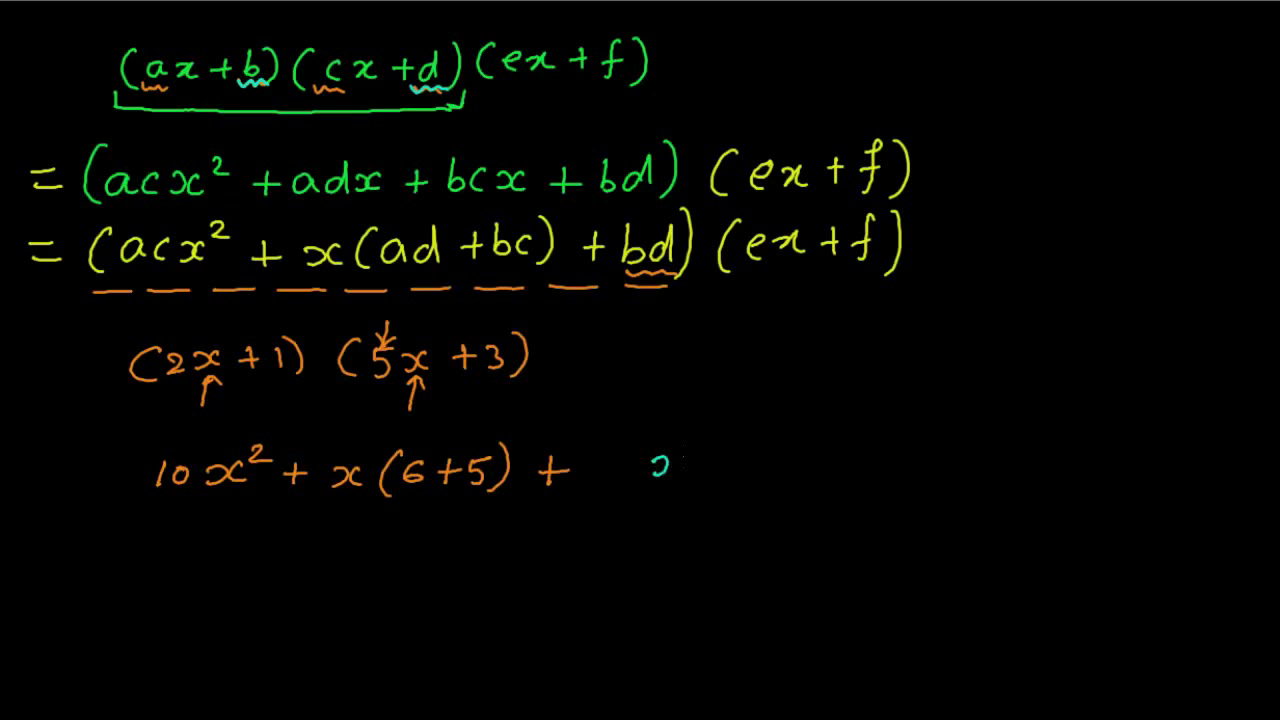 (ax+b)(cx+d)(ex+f)
=(acx²+adx+bcx+bd)(ex+f)
=(acx²+x(ad+bc)+bd)(ex+f)
(2x+1)(5x+3)
10x²+x(6+5)+